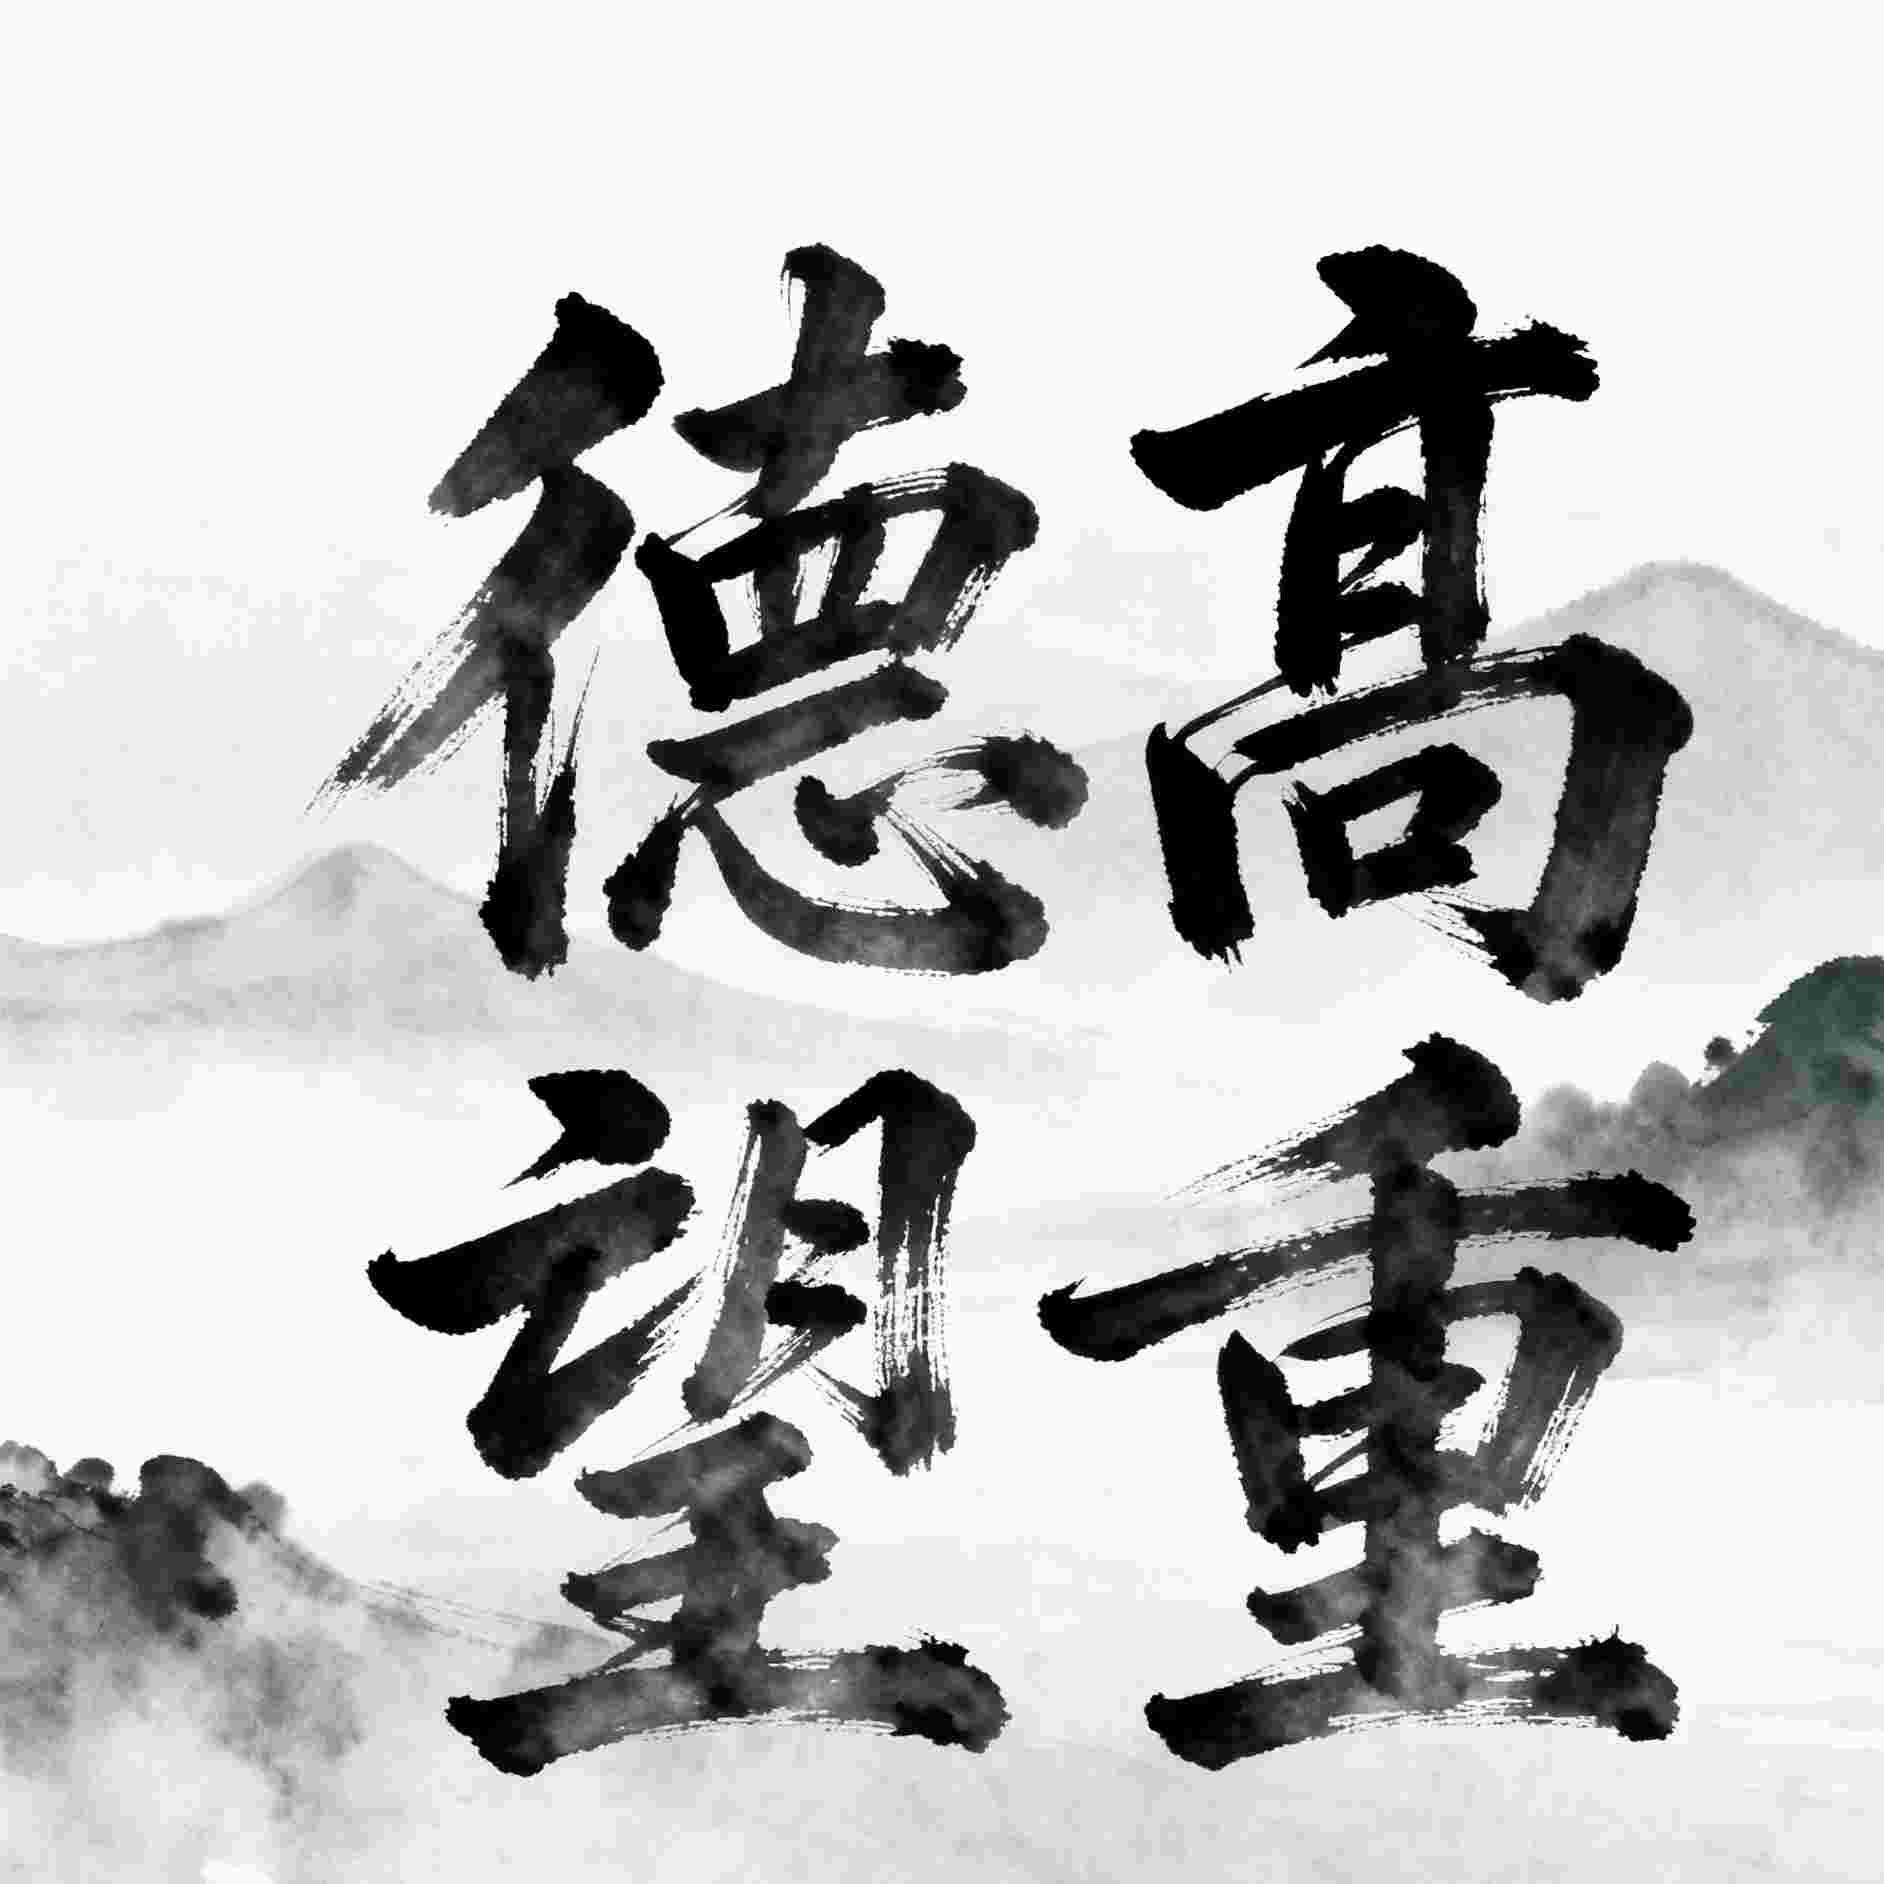 德高
望重